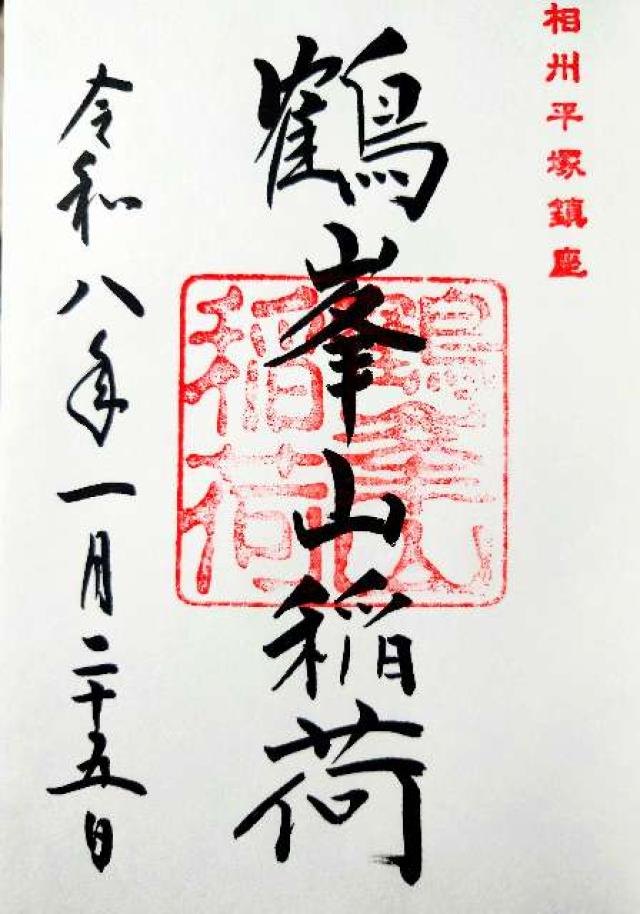 相州平塚鎮座
鶴峯山稲荷
鶴峯山
稲荷
令和八年一月二十五日